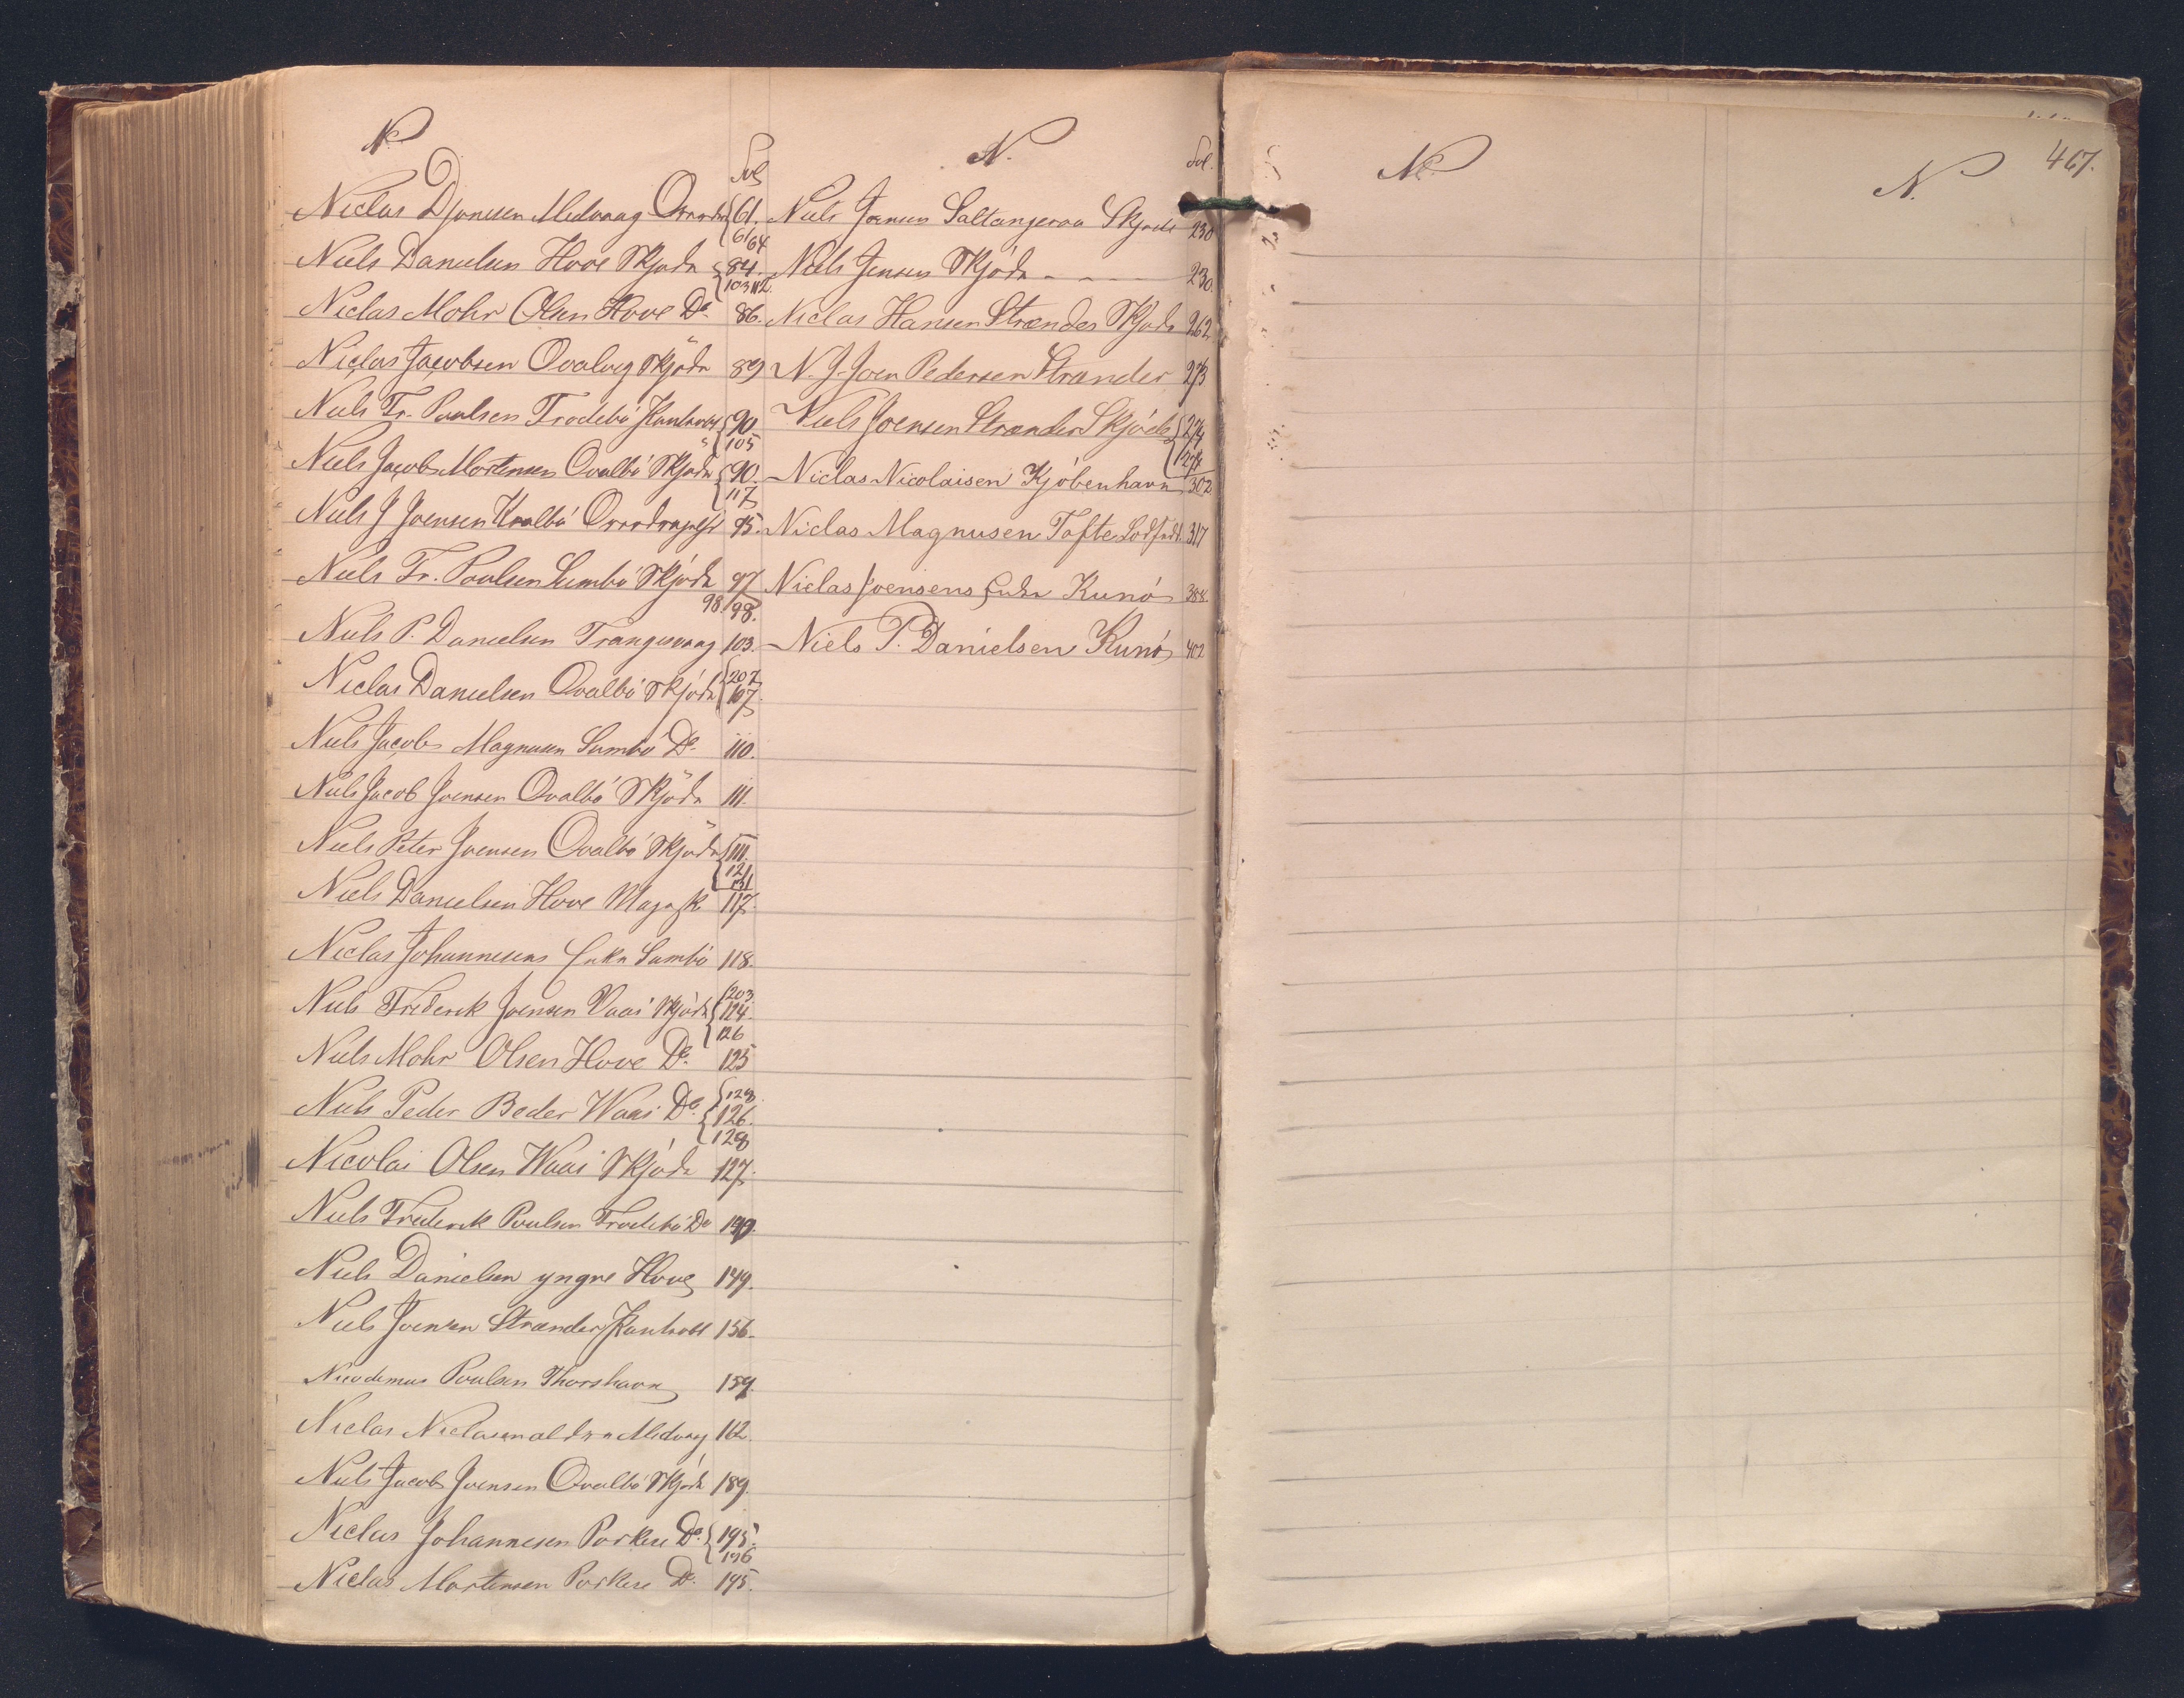 N.
Fol
Niclas Djonesen Midvaag 61.
61 64
Niels Danielsen Hove Skjøde 84.
103 112.
Niclas Mohr Olsen Hove Do. 86.
Niclas Jacobsen Qvalvig Skjøde 89
Niels Fr. Poulsen Frodebø Kontrakt 90
" 105
Niels Jacob Mortensen Qvalbø Skjøde 90.
117
Niels J Joensen Qvalbø 95.
Niels Fr. Poulsen Sumbø Skjøde 97
98. 98.
Niels P. Danielsen Trangisvaag 103.
207
Niclas Danielsen Qvalbø Skjøde 107.
Niels Jacob Magnusen Sumbø Do. 110.
Niels Jacob Joensen Qvalbø Skjøde 111.
Niels Peter Joensen Qvalbø Skjøde 111.
121
131
Niels Danielsen Hove 117.
Niclas Johannesens Enke Sumbø 118.
203.
Niels Frederik Joensen Vaai Skjøde 124.
126
Niels Mohr Olsen Hove Do. 125
128.
Niels Peder Beder Waai Do. 126.
128
Nicolai Olsen Waai Skjøde 127.
Niels Frederik Poulsen Frodebø Do
Niels Danielsen yngre Hove 149.
Niels Joensen Strænder Kontrakt 156.
Nicodemus Poulsen Thorshavn 159.
Niclas Niclasen ældre Midvaag 162.
Niels Jacob Joensen Qvalbø Skjøde 189.
Niclas Johannesen Porkere Do. 195.
196
Niclas Mortensen Porkere Do. 195.
N.
Fol.
Niels Joensen Saltangeraa Skjøde 230
Niels Jensen Skjøde - - - - 230.
Niclas Hansen Strænder Skjøde 262
N. J. Joen Pedersen Strænder 273
Niels Joensen Strænder Skjøde 274
274
Niclas Nicolaisen Kjøbenhavn 302
Niclas Magnusen Tofte 317
Niclas Joensens Enke Kunø 388.
Niels P. Danielsen Kunø 402
N.
N.
467.